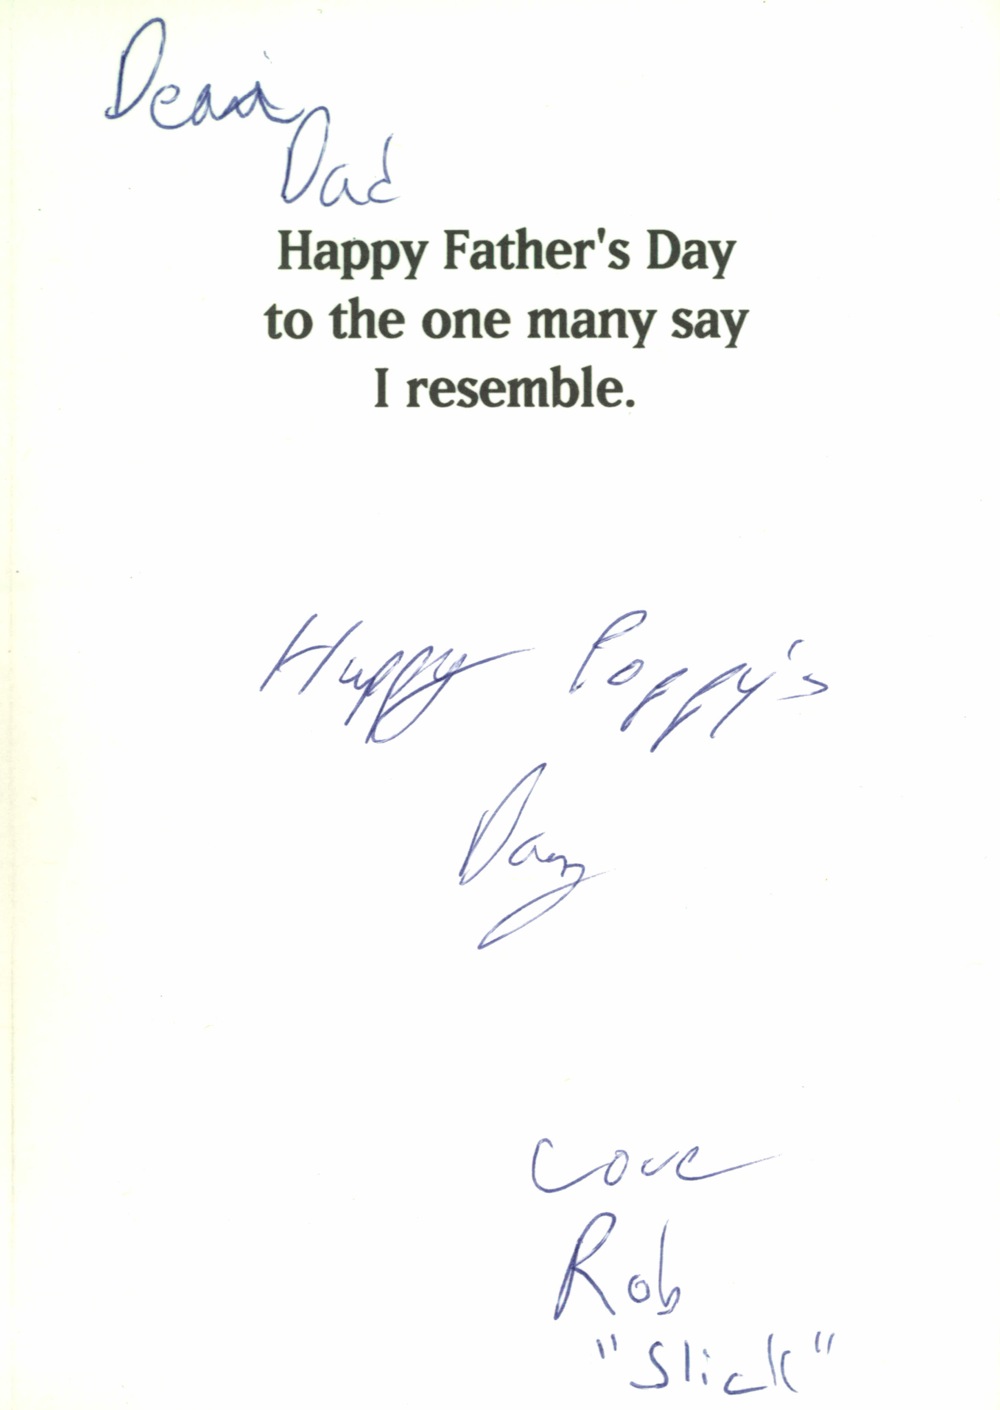 Dear
Dad
Happy Father's Day
to the one many say
I resemble.
Happy Poppy's
Day
Love
Rob
"Slick"